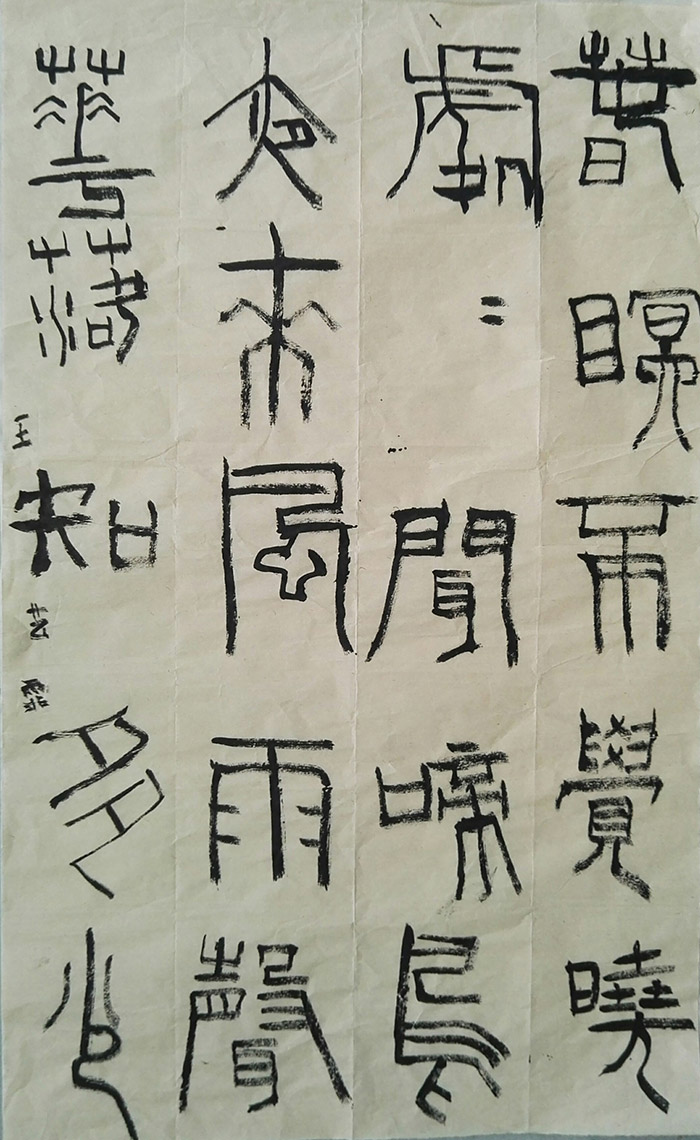 春眠不覺曉
處〻聞啼鳥
夜來風雨聲
華落知多少
王芸